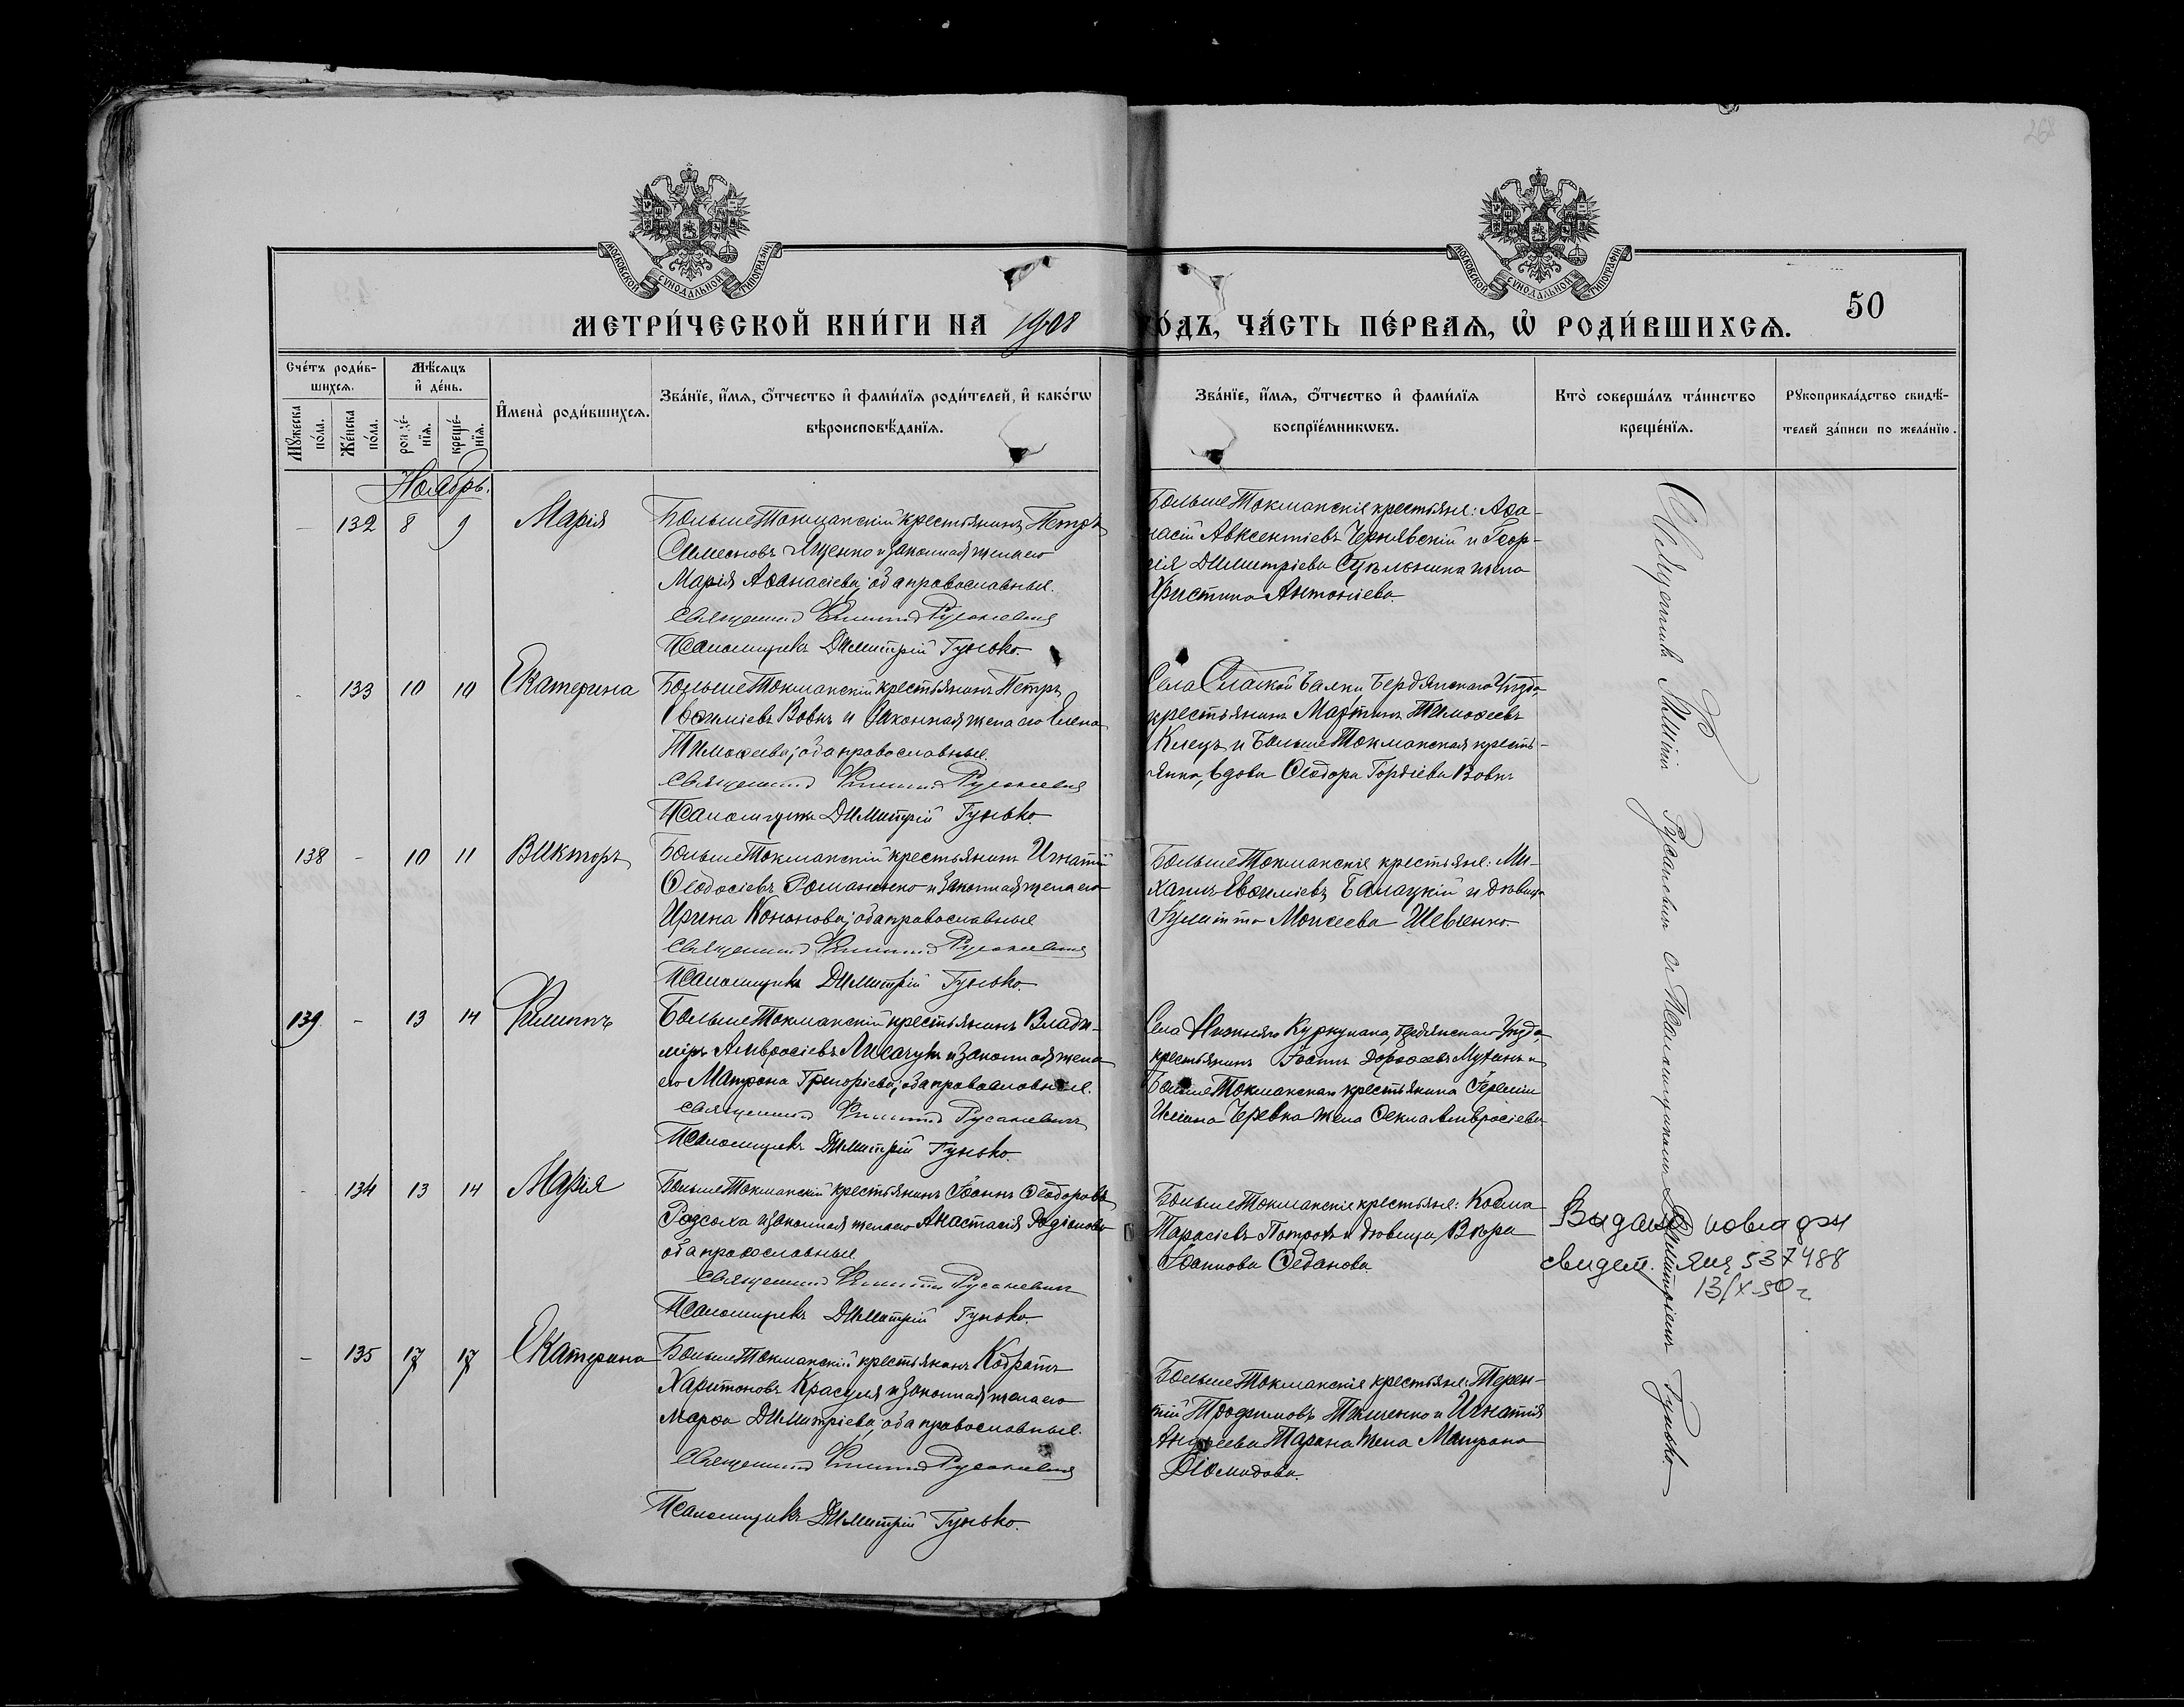 268
МОСКОВСКОЙ СѴНОДАЛЬНОЙ ТИПОГРАФІИ
МОСКОВСКОЙ СѴНОДАЛЬНОЙ ТИПОГРАФІИ
50
МЕТРИ́ЧЕСКОЙ КНИ́ГИ НА 1908
О́ДЪ, ЧА́СТЬ ПЕ́РВАѦ, Ѡ҆ РОДИ́ВШИХСѦ.
Сче́тъ роди́в-
шихсѧ.
Мѣ́сѧцъ
и҆ де́нь.
Мꙋ́жеска по́ла.
Же́нска по́ла.
рожде́-
нїѧ.
креще́-
нїѧ.
И҆мена̀ роди́вшихсѧ.
Зва́нїе, и҆́мѧ, ѻ҆́тчество и҆ фами́лїѧ роди́телей, и҆ како́гѡ
вѣроисповѣ́данїѧ.
Зва́нїе, и҆́мѧ, ѻ҆́тчество и҆ фами́лїѧ
воспрїе́мникѡвъ.
Кто̀ соверша́лъ та́инство
креще́нїѧ.
Рꙋкоприкла́дство свидѣ́-
телей за́писи по жела́нїю.
Ноябрь.
- 132 8 9 Марія
Больше Токмакскій крестьянинъ Петръ
Симеоновъ Яценко и законная жена его
Марія Аѳанасіева; оба православные.
Священникъ Филиппъ Русаневичъ
Псаломщикъ Димитрій Гунько.
Больше Токмакскіе крестьяне: Аѳа-
насій Авксентіевъ Чернявскій и Геор-
гія Димитріева жена
Христина Антоніева.
- 133 10 10 Екатерина
Больше Токмакскій крестьянинъ Петръ
Евѳиміевъ Вовкъ и законная жена его Елена
Тимоѳеева; оба православные.
Священникъ Филиппъ Русаневичъ
Псаломщикъ Димитрій Гунько.
Села Сладкой Балки Бердянскаго Уѣзда,
крестьянинъ Мартинъ Тимоѳеевъ
Клецъ и Больше Токмакская кресть-
янка, вдова Ѳеодора Гордіева Вовкъ
138 - 10 11 Викторъ
Больше Токмакскій крестьянинъ Игнатій
Ѳеодосіевъ Романенко и законная жена его
Ирина Кононова; оба православные
Священникъ Филиппъ Русаневичъ
Псаломщикъ Димитрій Гунько.
Больше Токмакскіе крестьяне: Ми-
хаилъ Евѳиміевъ Балацкій и дѣвица
Іулитта Моисеева Шевченко.
139 - 13 14 Филиппъ
Больше Токмакскій крестьянинъ Влади-
міръ Амвросіевъ Лисачукъ и законная жена
его Матрона Григоріева; оба православные.
Священникъ Филиппъ Русаневичъ
Псаломщикъ Димитрій Гунько.
Села Нижняго Куркулака, Бердянскаго Уѣзда,
крестьянинъ Іоаннъ Дороѳеевъ и
Больше Токмакскаго крестьянина Іереміи
Исаіина Черевка жена Ѳекла Амвросіева
- 134 13 14 Марія
Больше Токмакскій крестьянинъ Іоаннъ Ѳеодоровъ
Розсоха и законная жена его Анастасія Родіонова
оба православные
Священникъ Филиппъ Русаневичъ
Псаломщикъ Димитрій Гунько.
Больше Токмакскіе крестьяне: Косма
Тарасіевъ и дѣвица Вѣра
Іоаннова Седанова.
- 135 17 17 Екатерина
Больше Токмакскій крестьянинъ Кодратъ
Харитоновъ Красуля и законная жена его
Марѳа Димитріева; оба православные.
Священникъ Филиппъ Русаневичъ
Псаломщикъ Димитрій Гунько.
Больше Токмакскіе крестьяне: Терен-
тій Трофимовъ Ткаченко и Игнатія
Андреева Тарана жена Матрона
Діомидова.
Священникъ Филиппъ Русаневичъ съ Псаломщикомъ Димитріемъ Гунько.
Видано
свидет. 537488
13/X-50 г.